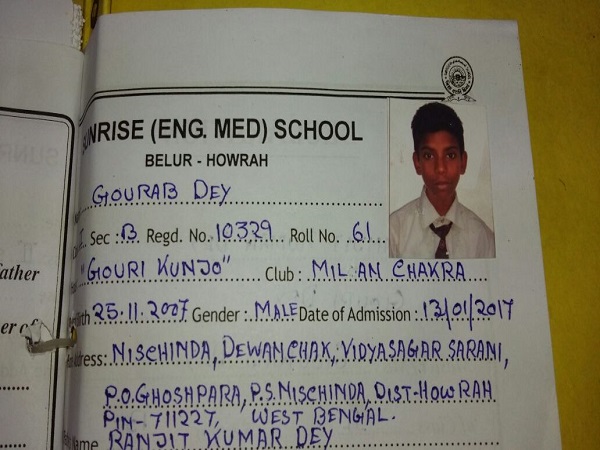 SUNRISE (ENG. MED) SCHOOL
BELUR - HOWRAH
GOURAB DEY
Sec : B Regd. No. 10329 Roll No. 61
"GOURI KUNJO" Club : MILAN CHAKRA
Birth 25.11.2007 Gender : MALE Date of Admission : 13/01/2017
Address: NISCHINDA, DEWANCHAK, VIDYASAGAR SARANI,
P.O. GHOSHPARA, P.S. NISCHINDA, DIST-HOWRAH
PIN- 711227, WEST BENGAL.
Name RANJIT KUMAR DEY
father
er of